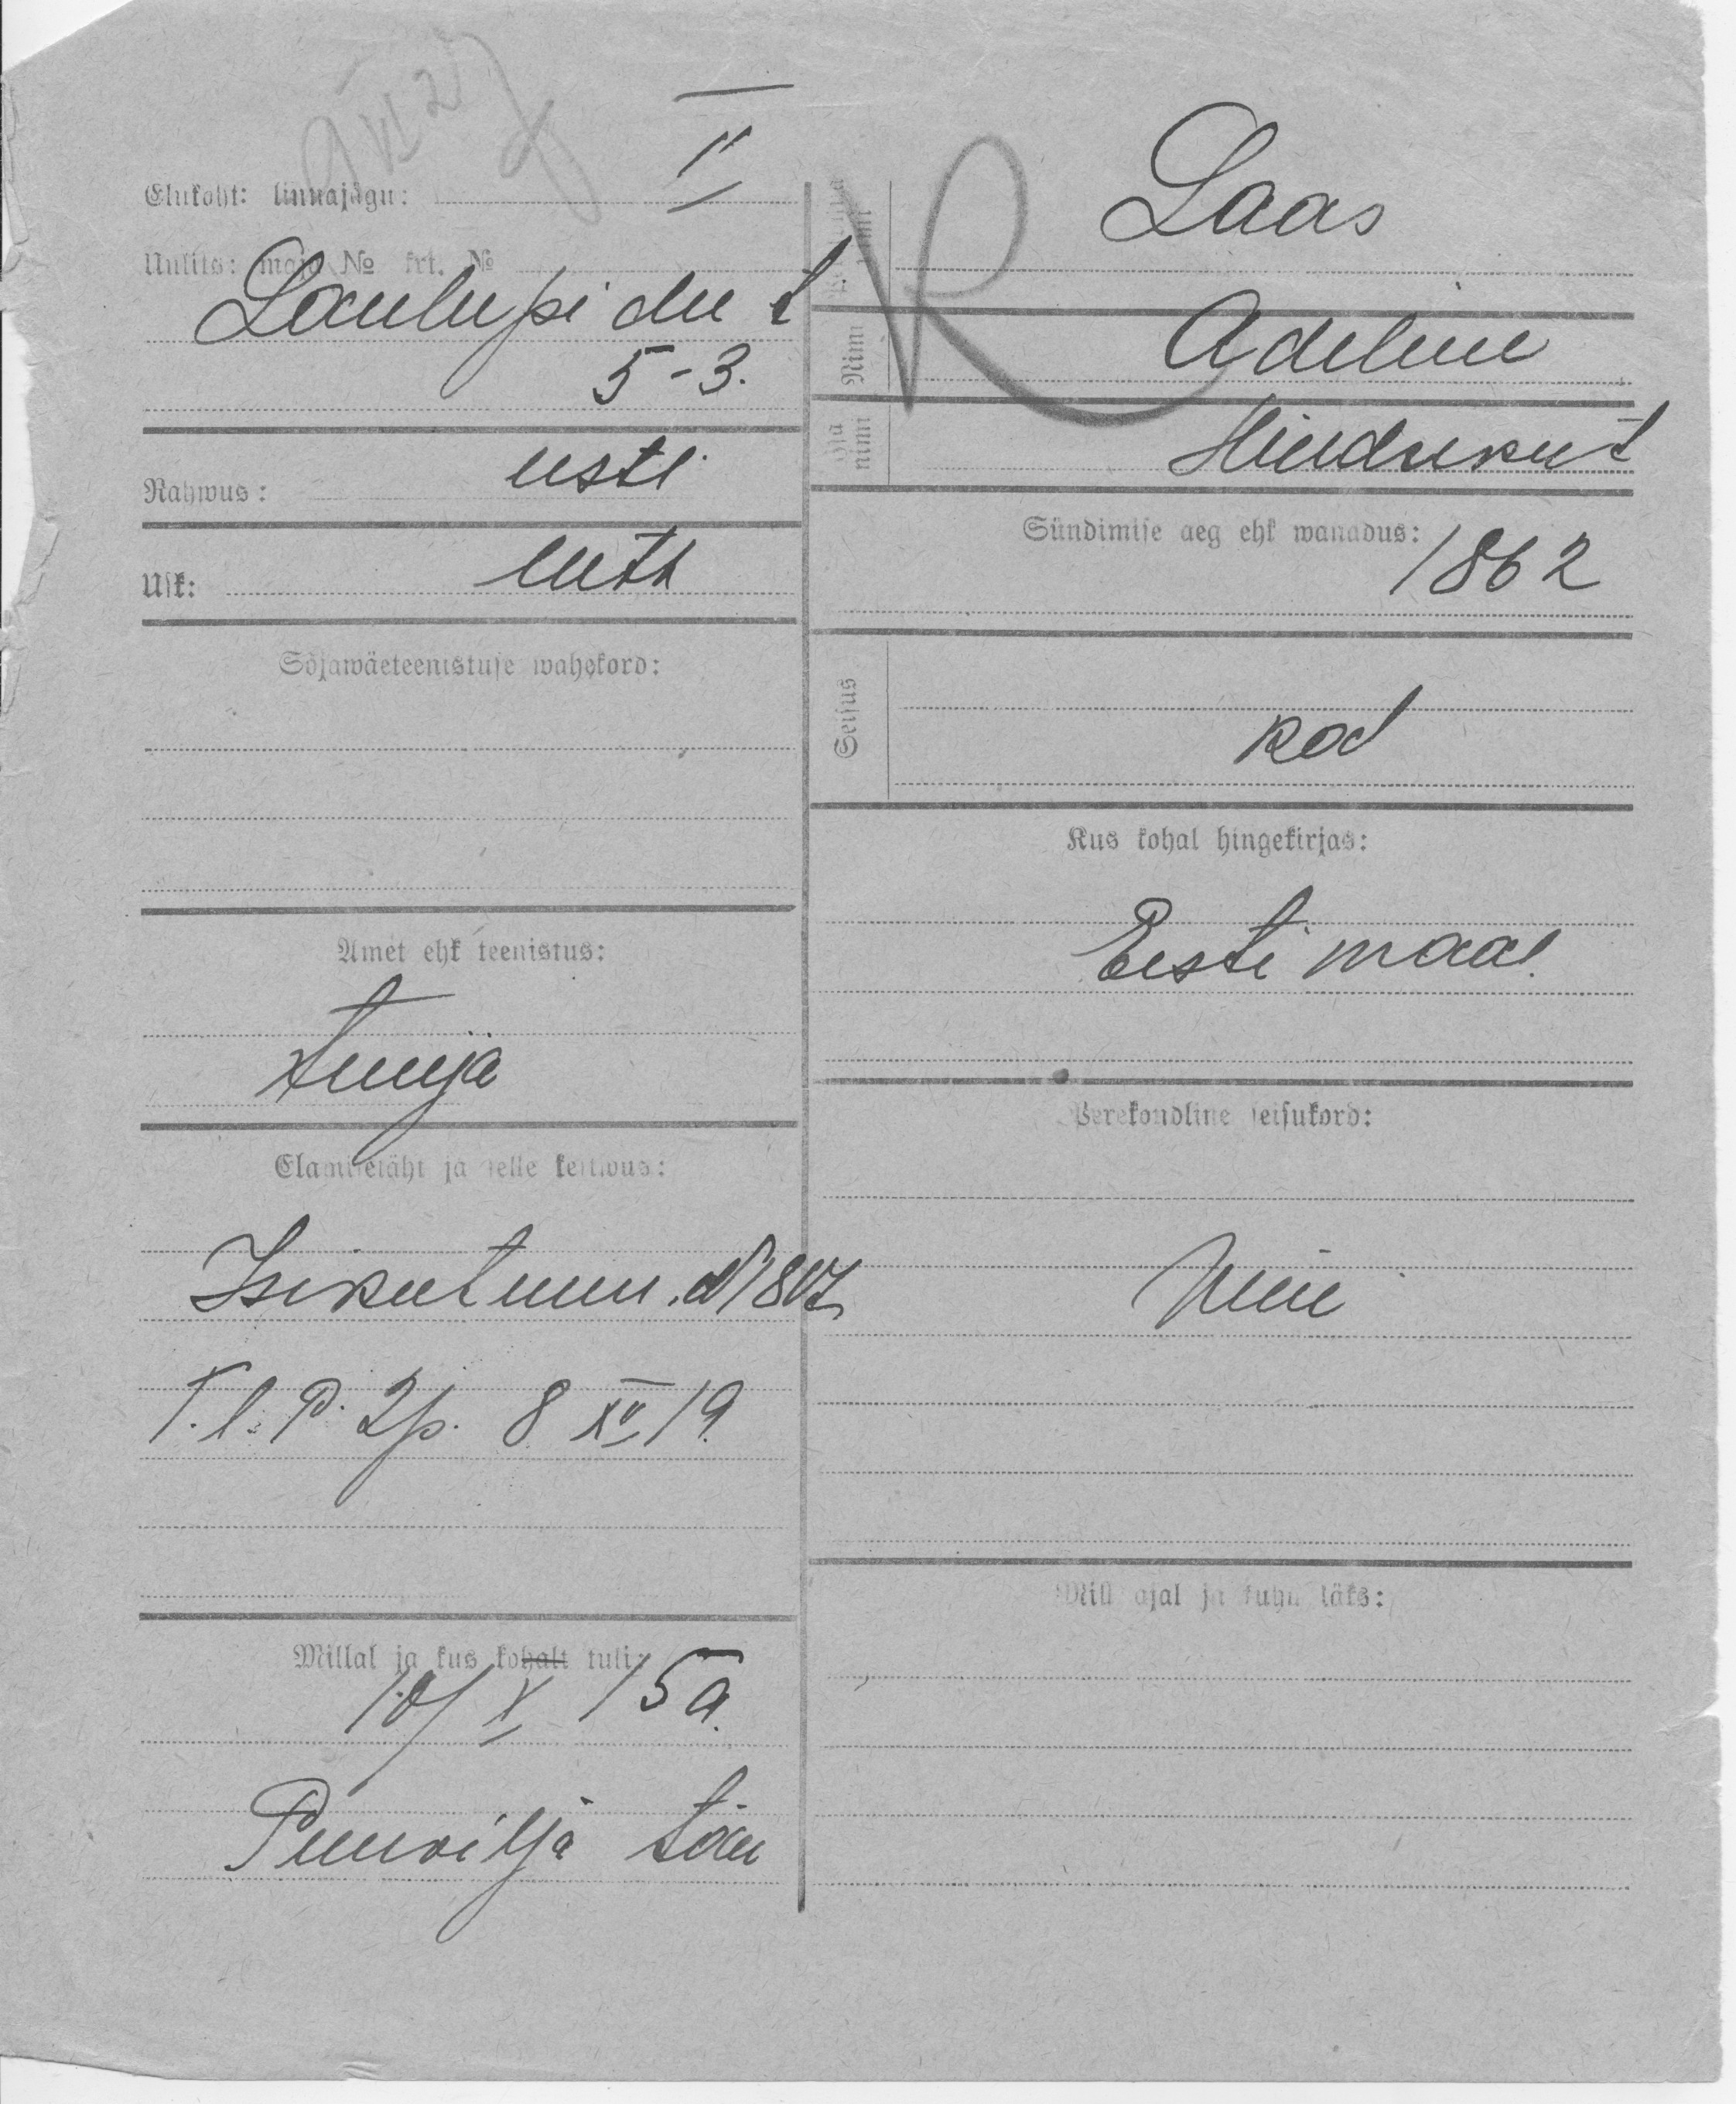 II
Elukoht: linnajagu:
Uulits: maja № krt. №
Laulupidu t
5-3.
Rahwus: eesti
Usk: luth
Sõjawäeteenistuse wahekord:
Amet ehk teenistus:
teenija
Elamisetäht ja selle kestwus:
Isikut tunn. №
T.l.P. 2jp. 8 XII 19.
Millal ja kus kohalt tuli:
10/X 15 a.
Puuvilja tän
R
Laas
Nimi Adeline
Isa nimi Hindreku t
Sündimise aeg ehk wanadus:
1862
Seisus
kod
Kus kohal hingekirjas:
Eesti maal.
Perekondline seisukord:
Mill ajal ja kuhu läks: